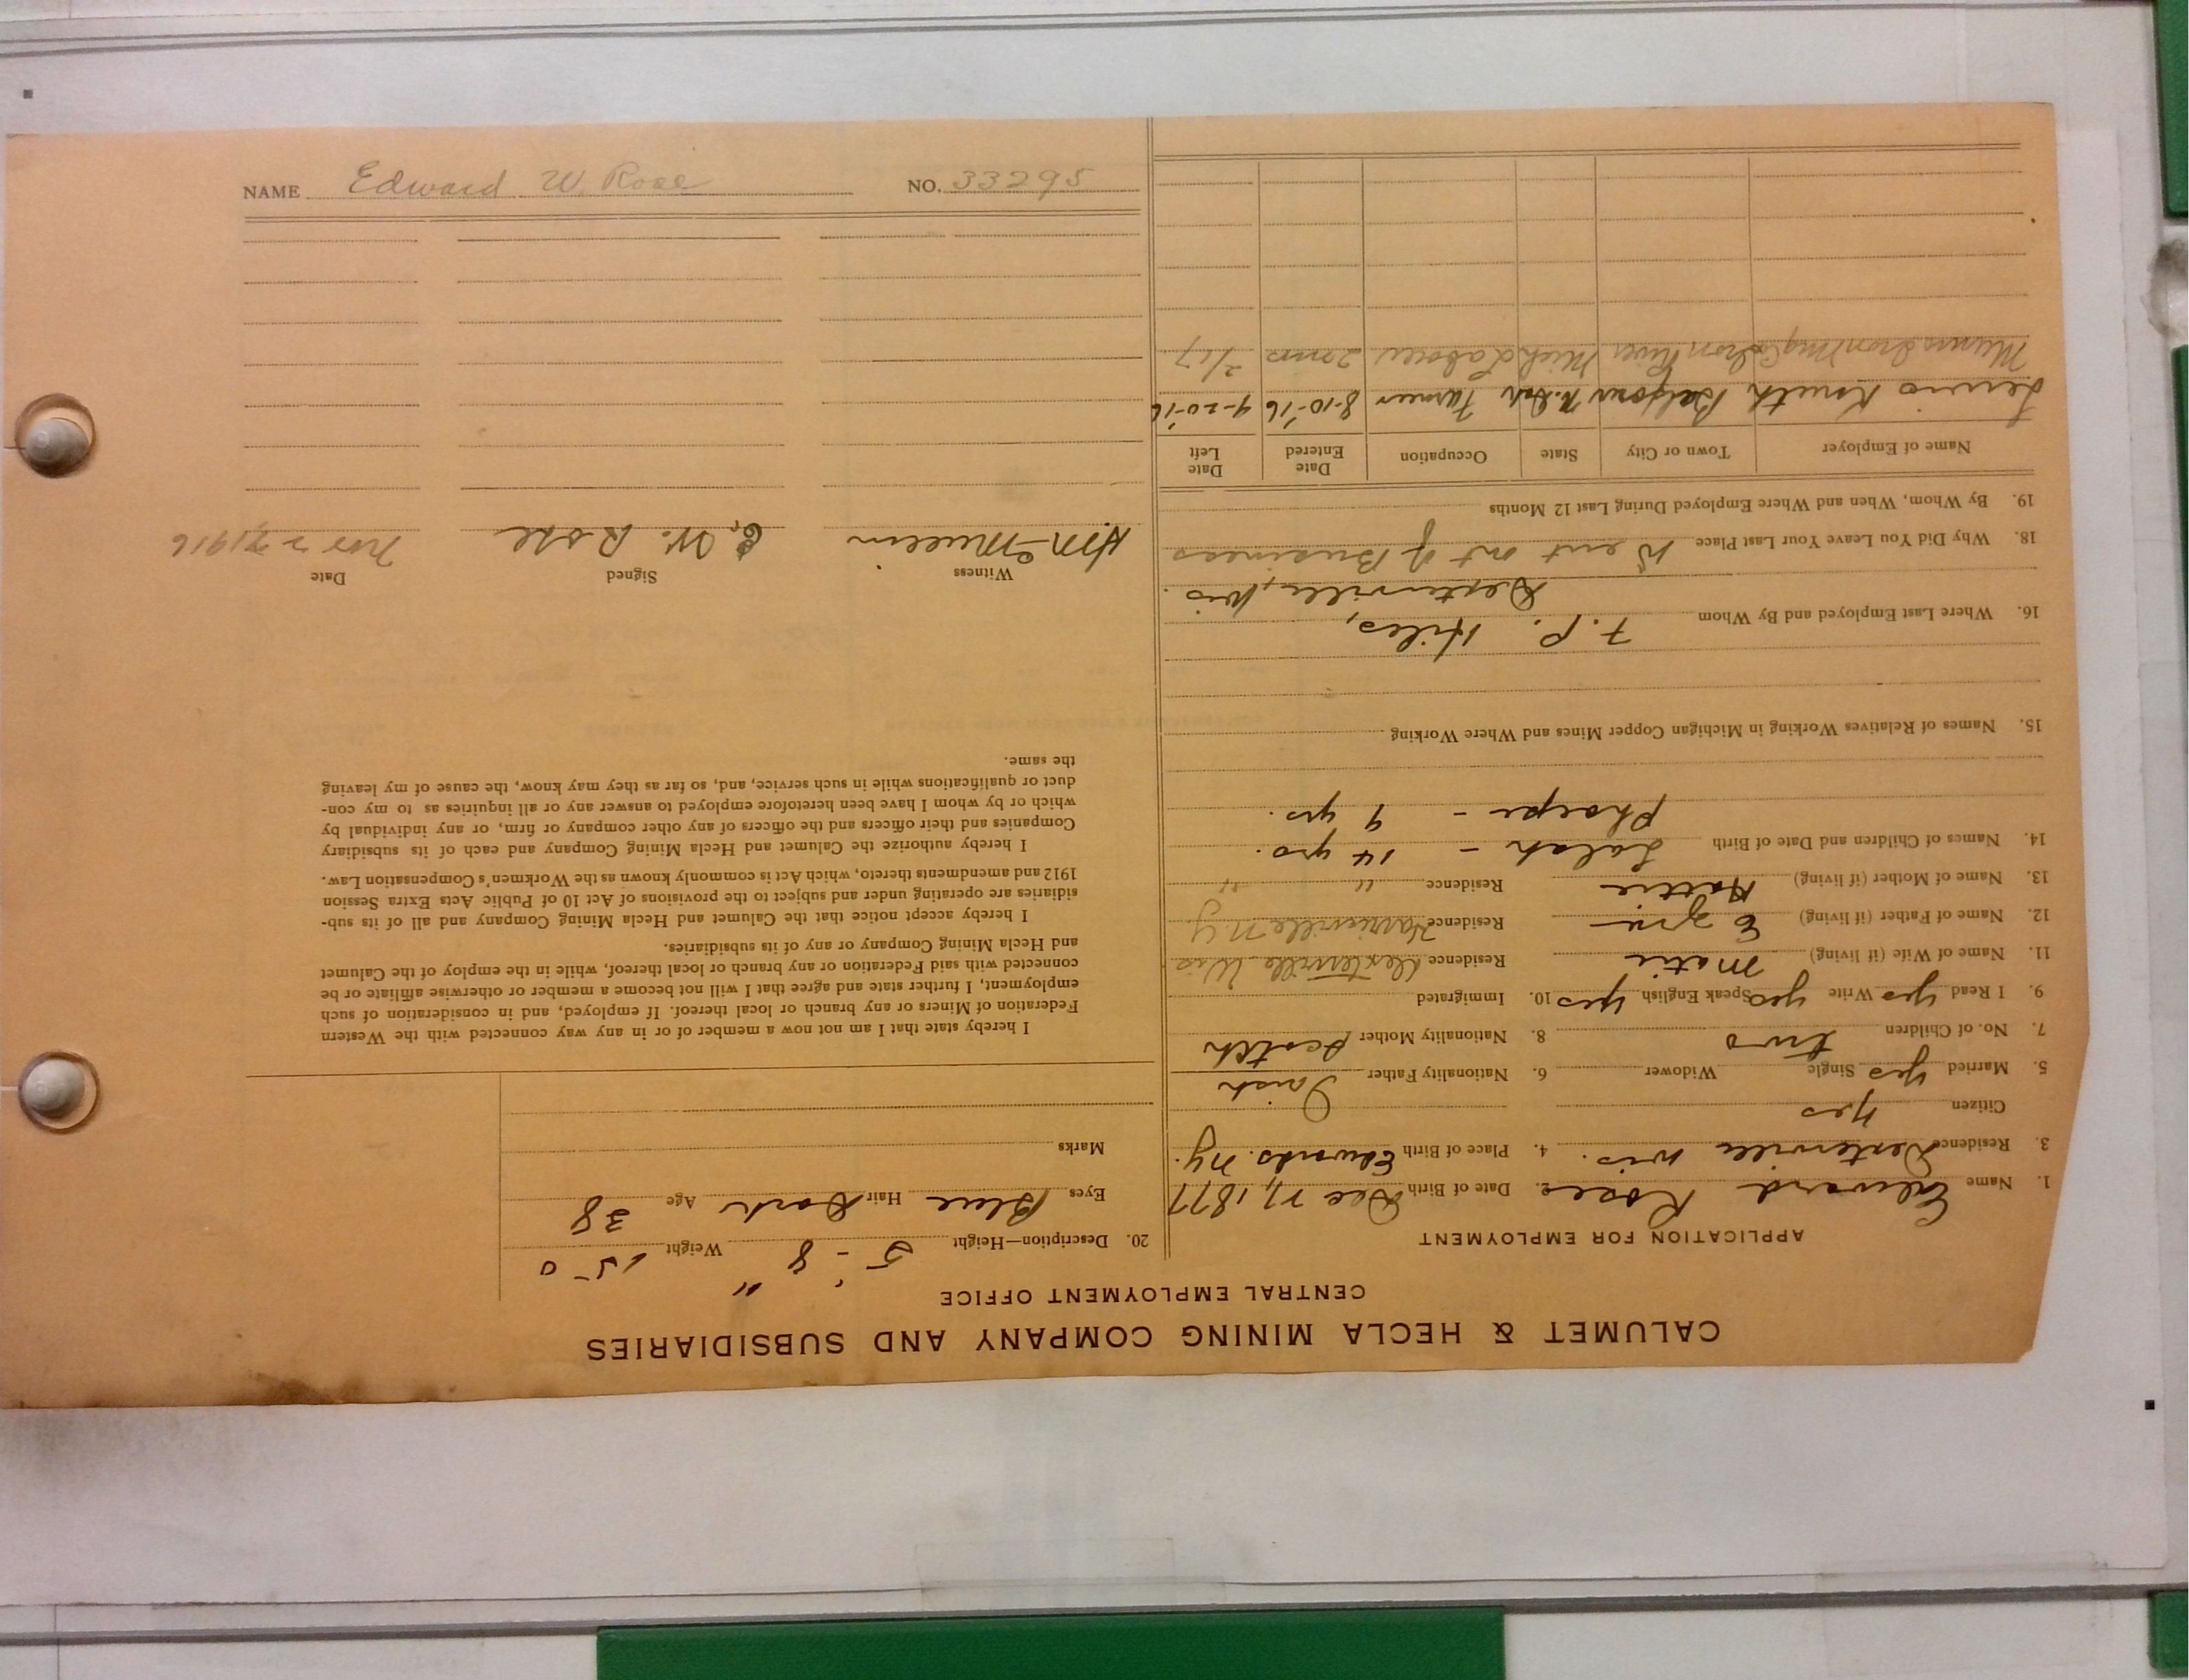 CALUMET & HECLA MINING COMPANY AND SUBSIDIARIES
CENTRAL EMPLOYMENT OFFICE
APPLICATION FOR EMPLOYMENT
1. Name Edward Rose 2. Date of Birth Dec 27, 1877
3. Residence Dexterville Wis. 4. Place of Birth Edwards. N.Y.
Citizen Yes
5. Married yes Single Widower 6. Nationality Father Irish
7. No. of Children two 8. Nationality Mother Scotch
9. I Read yes Write yes Speak English yes 10. Immigrated
11. Name of Wife (if living) Matie Residence Dexterville Wis
12. Name of Father (if living) Ezra Residence Harrisville N.Y.
13. Name of Mother (if living) Hattie Residence " "
14. Names of Children and Date of Birth Lalah - 14 yrs.
Phoepe - 9 yrs.
15. Names of Relatives Working in Michigan Copper Mines and Where Working
16. Where Last Employed and By Whom F. P. Hiles,
Dexterville, Wis.
18. Why Did You Leave Your Last Place Went out of Business
19. By Whom, When and Where Employed During Last 12 Months
Name of Employer Town or City State Occupation Date Entered Date Left
Lewis Knuth Balfour N. Dak Farmer 8-10-'16 9-20-'16
Munro Iron Mng Co Iron River Mich Laborer 2 mos 2/17
20. Description—Height 5' - 8" Weight 150
Eyes Blue Hair Dark Age 38
Marks
I hereby state that I am not now a member of or in any way connected with the Western
Federation of Miners or any branch or local thereof. If employed, and in consideration of such
employment, I further state and agree that I will not become a member or otherwise affiliate or be
connected with said Federation or any branch or local thereof, while in the employ of the Calumet
and Hecla Mining Company or any of its subsidiaries.
I hereby accept notice that the Calumet and Hecla Mining Company and all of its sub-
sidiaries are operating under and subject to the provisions of Act 10 of Public Acts Extra Session
1912 and amendments thereto, which Act is commonly known as the Workmen's Compensation Law.
I hereby authorize the Calumet and Hecla Mining Company and each of its subsidiary
Companies and their officers and the officers of any other company or firm, or any individual by
which or by whom I have been heretofore employed to answer any or all inquiries as to my con-
duct or qualifications while in such service, and, so far as they may know, the cause of my leaving
the same.
Witness Signed Date
E. W. Rose Nov 27, 1916
NAME Edward W. Rose NO. 33295